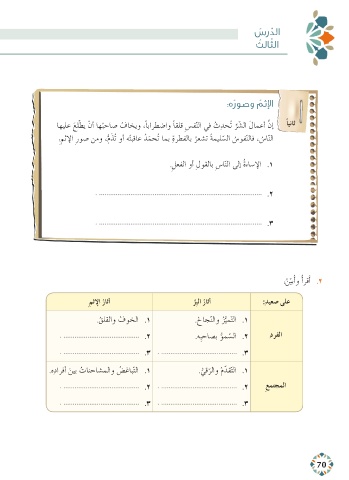 الدّرسُ
الثّالث
ثانياً
الإثمُ وصورُه:
إنّ أعمالَ الشّرّ تُحدِثُ في النّفسِ قلقاً واضطراباً، ويخافُ صاحبُها أنْ يطّلعَ عليها
النّاسُ، فالنّفوسُ السّليمةُ تشعرُ بالفطرةِ بما تُحمَدُ عاقبتُه أو تُذَمُّ، ومن صورِ الإثمِ:
١. الإساءةُ إلى النّاسِ بالقولِ أو الفعلِ.
٢. ........................................
٣. ........................................
٢. أقرأُ وأبيّنُ:
على صعيد: آثارُ البرّ آثارُ الإثمِ
١. التّميّزُ والنّجاحُ. ١. الخوفُ والقلقُ.
الفرد ٢. السّموُّ بصاحبِه. ٢. ....................
٣. .................... ٣. ....................
١. التّقدّمُ والرّقيُّ. ١. التّباغضُ والمشاحناتُ بينَ أفرادِه.
المجتمع ٢. .................... ٢. ....................
٣. .................... ٣. ....................
70